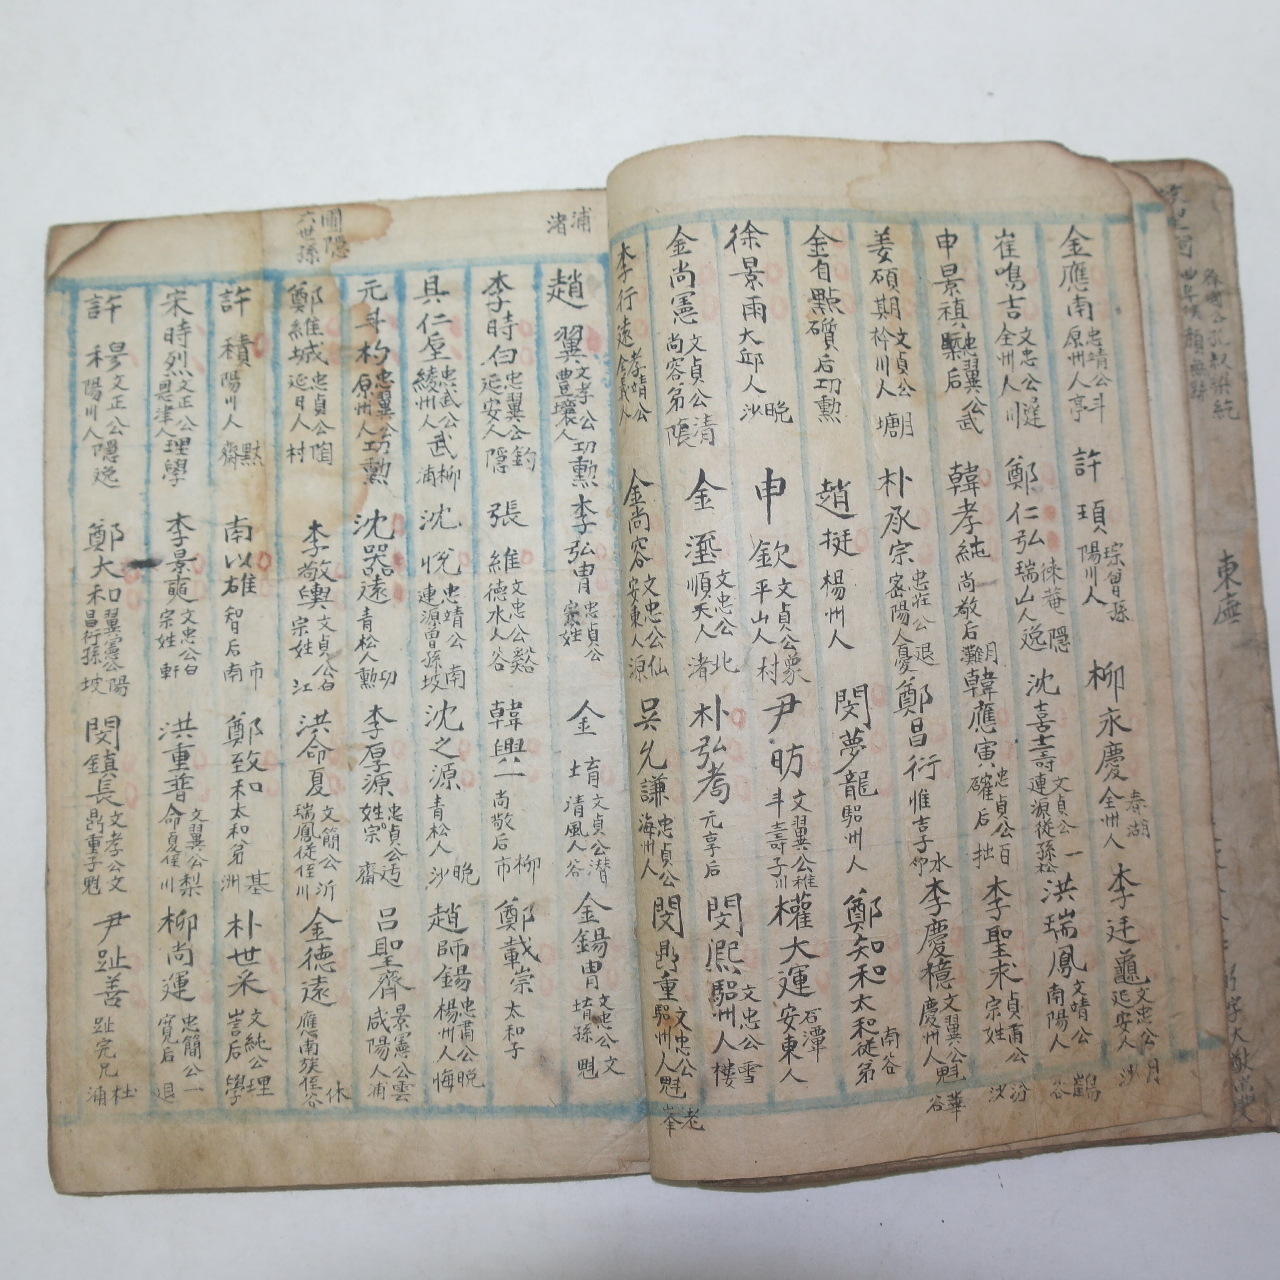 金應南 忠靖公斗 原州人亭 許頊 琮曾孫 陽川人 柳永慶 全州人 春湖 李廷龜 文忠公月 延安人沙
崔鳴吉 文忠公遲 全州人川 鄭仁弘 徠菴隱 瑞山人逸 沈喜壽 文貞公一 連源從孫松 洪瑞鳳 文靖公鶴 南陽人谷
申景禛 忠翼公武 後 韓孝純 尚敬后月灘 韓應寅 忠貞公百 確后拙 李聖求 貞肅公汾 宗姓沙
姜碩期 文貞公月 衿川人塘 朴承宗 忠莊公退 密陽人憂 鄭昌衍 惟吉子水竹 李慶檍 文翼公魁 慶州人華谷
金自點 礩后功勲 趙挺 楊州人 閔夢龍 驪州人 鄭知和 太和從弟南谷
徐景雨 大邱人晩沙 申欽 文貞公象 平山人村 尹昉 文翼公稚 斗壽子川 權大運 安東人石潭
金尚憲 文貞公清 尚容弟陰 金瑬 文忠公北 順天人渚 朴弘耈 元亨后 閔熙 文忠公雪 驪州人樓
李行遠 孝靖公 全義人 金尚容 文忠公仙 安東人源 吳允謙 忠貞公 海州人 閔鼎重 文忠公 驪州人魁 老峯
浦渚
趙翼 文孝公 豊壤人 功勲 李弘胄 忠貞公 宗姓 金堉 文貞公潛 清風人谷 金錫胄 文忠公文 堉孫魁
李時白 忠翼公釣 延安人隱 張維 文忠公谿 德水人谷 韓興一 尚敬后柳市 鄭載崇 太和子
具仁垕 忠武公 綾州人 武 柳浦 沈悅 忠靖公南 連源曾孫坡 沈之源 青松人晩沙 趙師錫 忠肅公晩 楊州人悔
元斗杓 忠翼公 原州人 功勲 沈器遠 青松人功勲 李厚源 忠貞公迃 宗姓齋 呂聖齊 景憲公雲 咸陽人浦
圃隱六世孫
鄭維城 忠貞公陶 延日人村 李敬輿 文貞公白 宗姓江 洪命夏 文簡公沂 瑞鳳從侄川 金德遠 應南族侄休谷
許積 陽川人默齋 南以雄 智后市南 鄭致和 太和弟基洲 朴世采 文純公理 訔后學
宋時烈 文正公 恩津人 理學 李景奭 文忠公白 宗姓軒 洪重普 文翼公梨 命夏侄川 柳尚運 忠簡公一 寬后退
許穆 文正公隱 陽川人逸 鄭大和 翼憲公陽 昌衍孫坡 閔鎮長 文孝公文 鼎重子魁 尹趾善 趾完兄杜浦
東廡